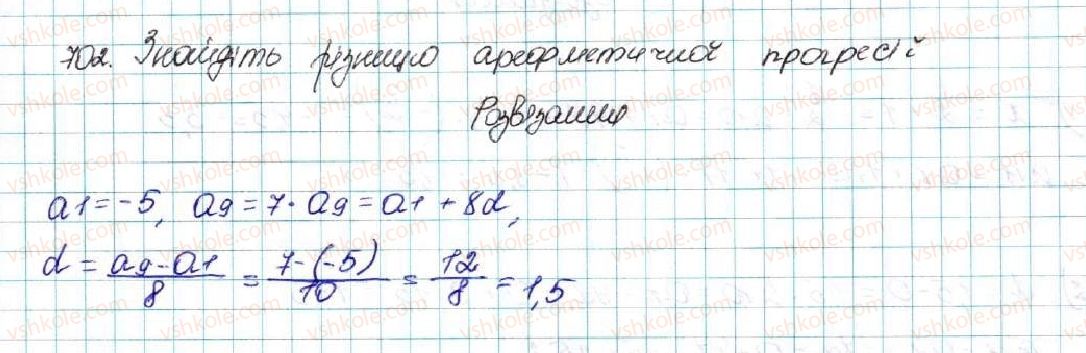 702. Знайдіть різницю арефметичної прогресії
Розвязання
a1 = -5, a9 = 7 · a9 = a1 + 8d,
d = a9 - a1 / 8 = 7 - (-5) / 10 = 12 / 8 = 1,5